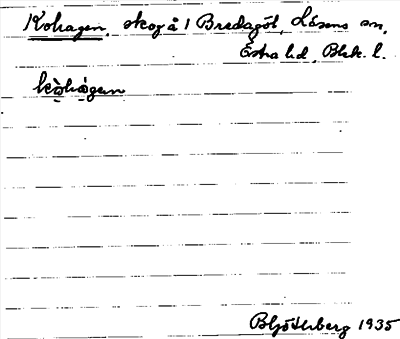 Kohagen, skog å 1 Bredagöl, Lösens sn,
Östra hd, Blek. l.
kòhágen
Bh Götlerberg 1935